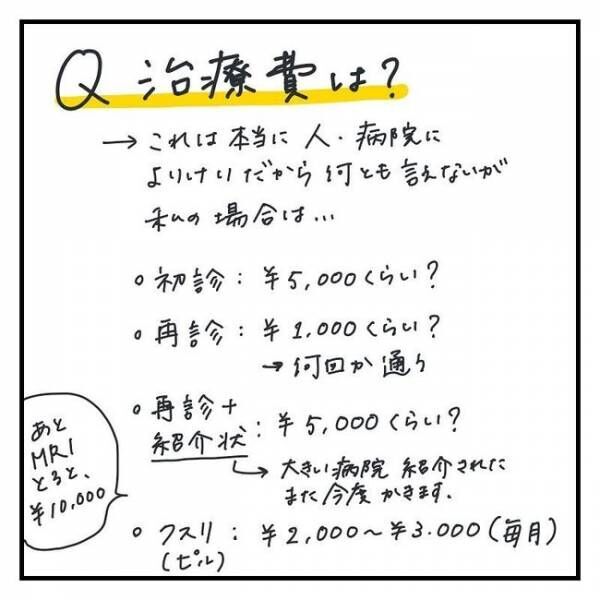 Q 治療費は?
→ これは本当に人・病院に
よりけりだから何とも言えないが
私の場合は...
○ 初診: ¥5,000くらい?
○ 再診: ¥1,000くらい?
→ 何回か通う
○ 再診+
紹介状: ¥5,000くらい?
→ 大きい病院 紹介された
また今度かきます.
あと
MRI
とると、
¥10,000
○ クスリ: ¥2,000〜¥3.000(毎月)
(ピル)